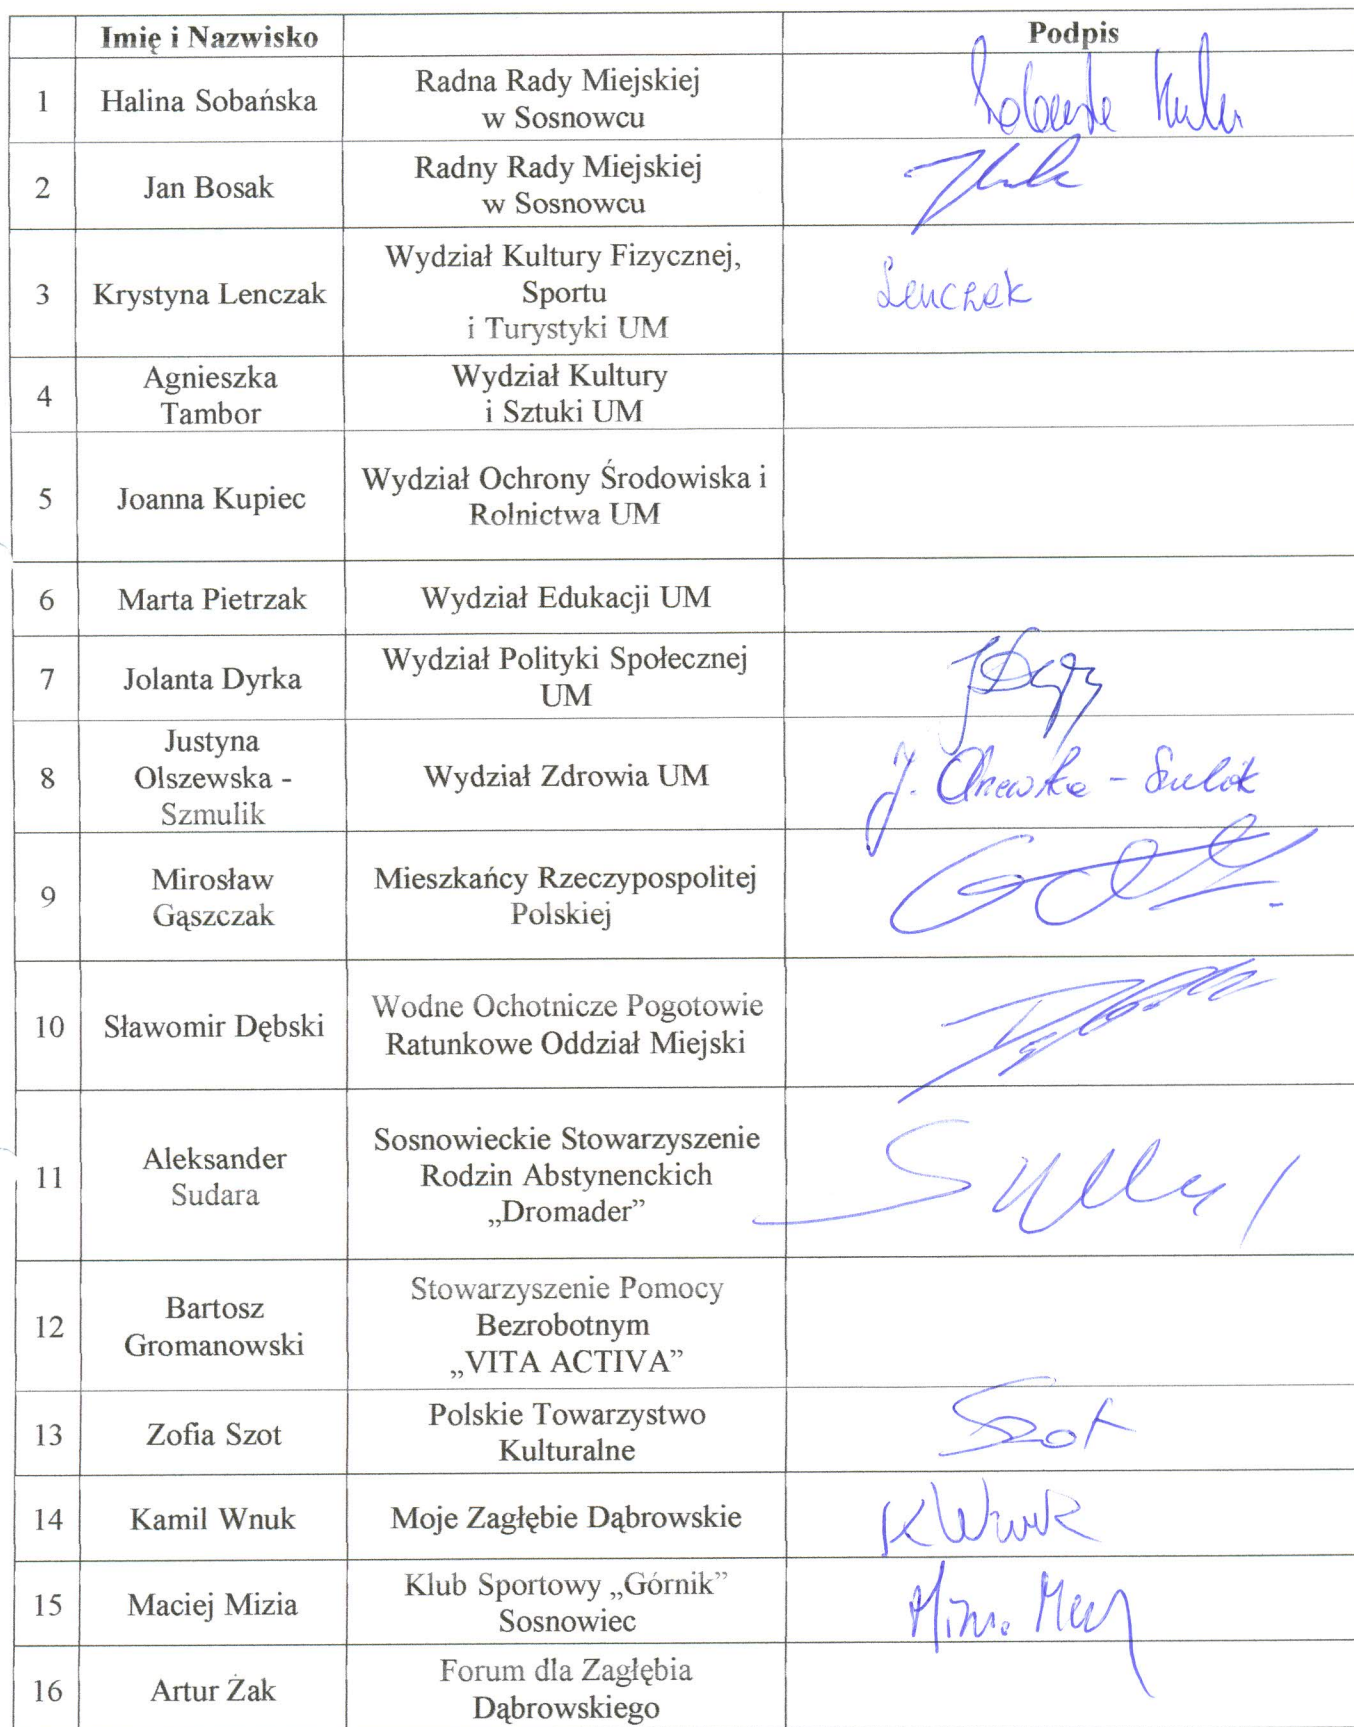 Imię i Nazwisko Podpis
1 Halina Sobańska Radna Rady Miejskiej
w Sosnowcu
2 Jan Bosak Radny Rady Miejskiej
w Sosnowcu
3 Krystyna Lenczak Wydział Kultury Fizycznej,
Sportu
i Turystyki UM
Lenczak
4 Agnieszka
Tambor
Wydział Kultury
i Sztuki UM
5 Joanna Kupiec Wydział Ochrony Środowiska i
Rolnictwa UM
6 Marta Pietrzak Wydział Edukacji UM
7 Jolanta Dyrka Wydział Polityki Społecznej
UM
8 Justyna
Olszewska -
Szmulik
Wydział Zdrowia UM
9 Mirosław
Gąszczak
Mieszkańcy Rzeczypospolitej
Polskiej
10 Sławomir Dębski Wodne Ochotnicze Pogotowie
Ratunkowe Oddział Miejski
11 Aleksander
Sudara
Sosnowieckie Stowarzyszenie
Rodzin Abstynenckich
„Dromader”
12 Bartosz
Gromanowski
Stowarzyszenie Pomocy
Bezrobotnym
„VITA ACTIVA”
13 Zofia Szot Polskie Towarzystwo
Kulturalne
Szot
14 Kamil Wnuk Moje Zagłębie Dąbrowskie K Wnuk
15 Maciej Mizia Klub Sportowy „Górnik”
Sosnowiec
16 Artur Żak Forum dla Zagłębia
Dąbrowskiego